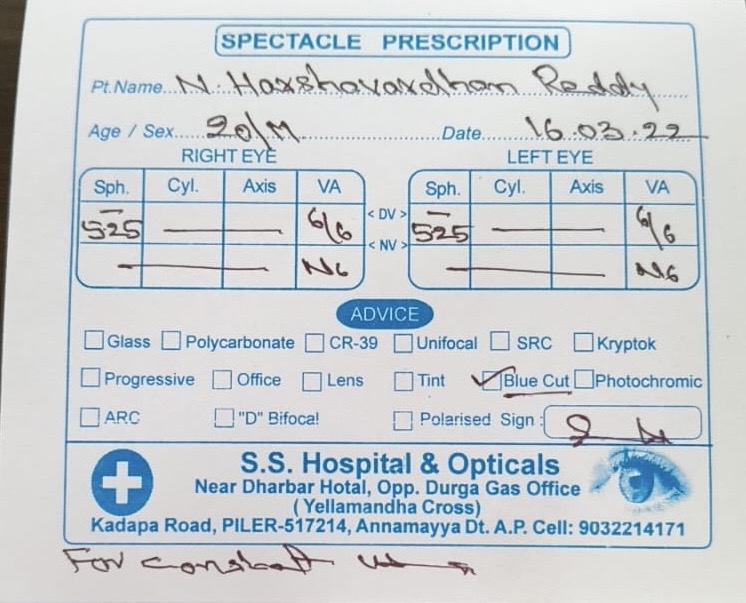 SPECTACLE PRESCRIPTION
Pt.Name... N. Harshavardhan Reddy
Age / Sex..... 20/M ..... Date..... 16.03.22
RIGHT EYE LEFT EYE
Sph. Cyl. Axis VA Sph. Cyl. Axis VA
-5.25 — 6/6 < DV > -5.25 — 6/6
— N6 < NV > — N6
ADVICE
Glass Polycarbonate CR-39 Unifocal SRC Kryptok
Progressive Office Lens Tint ✓ Blue Cut Photochromic
ARC "D" Bifocal Polarised Sign :
S.S. Hospital & Opticals
Near Dharbar Hotal, Opp. Durga Gas Office
( Yellamandha Cross)
Kadapa Road, PILER-517214, Annamayya Dt. A.P. Cell: 9032214171
For constant use